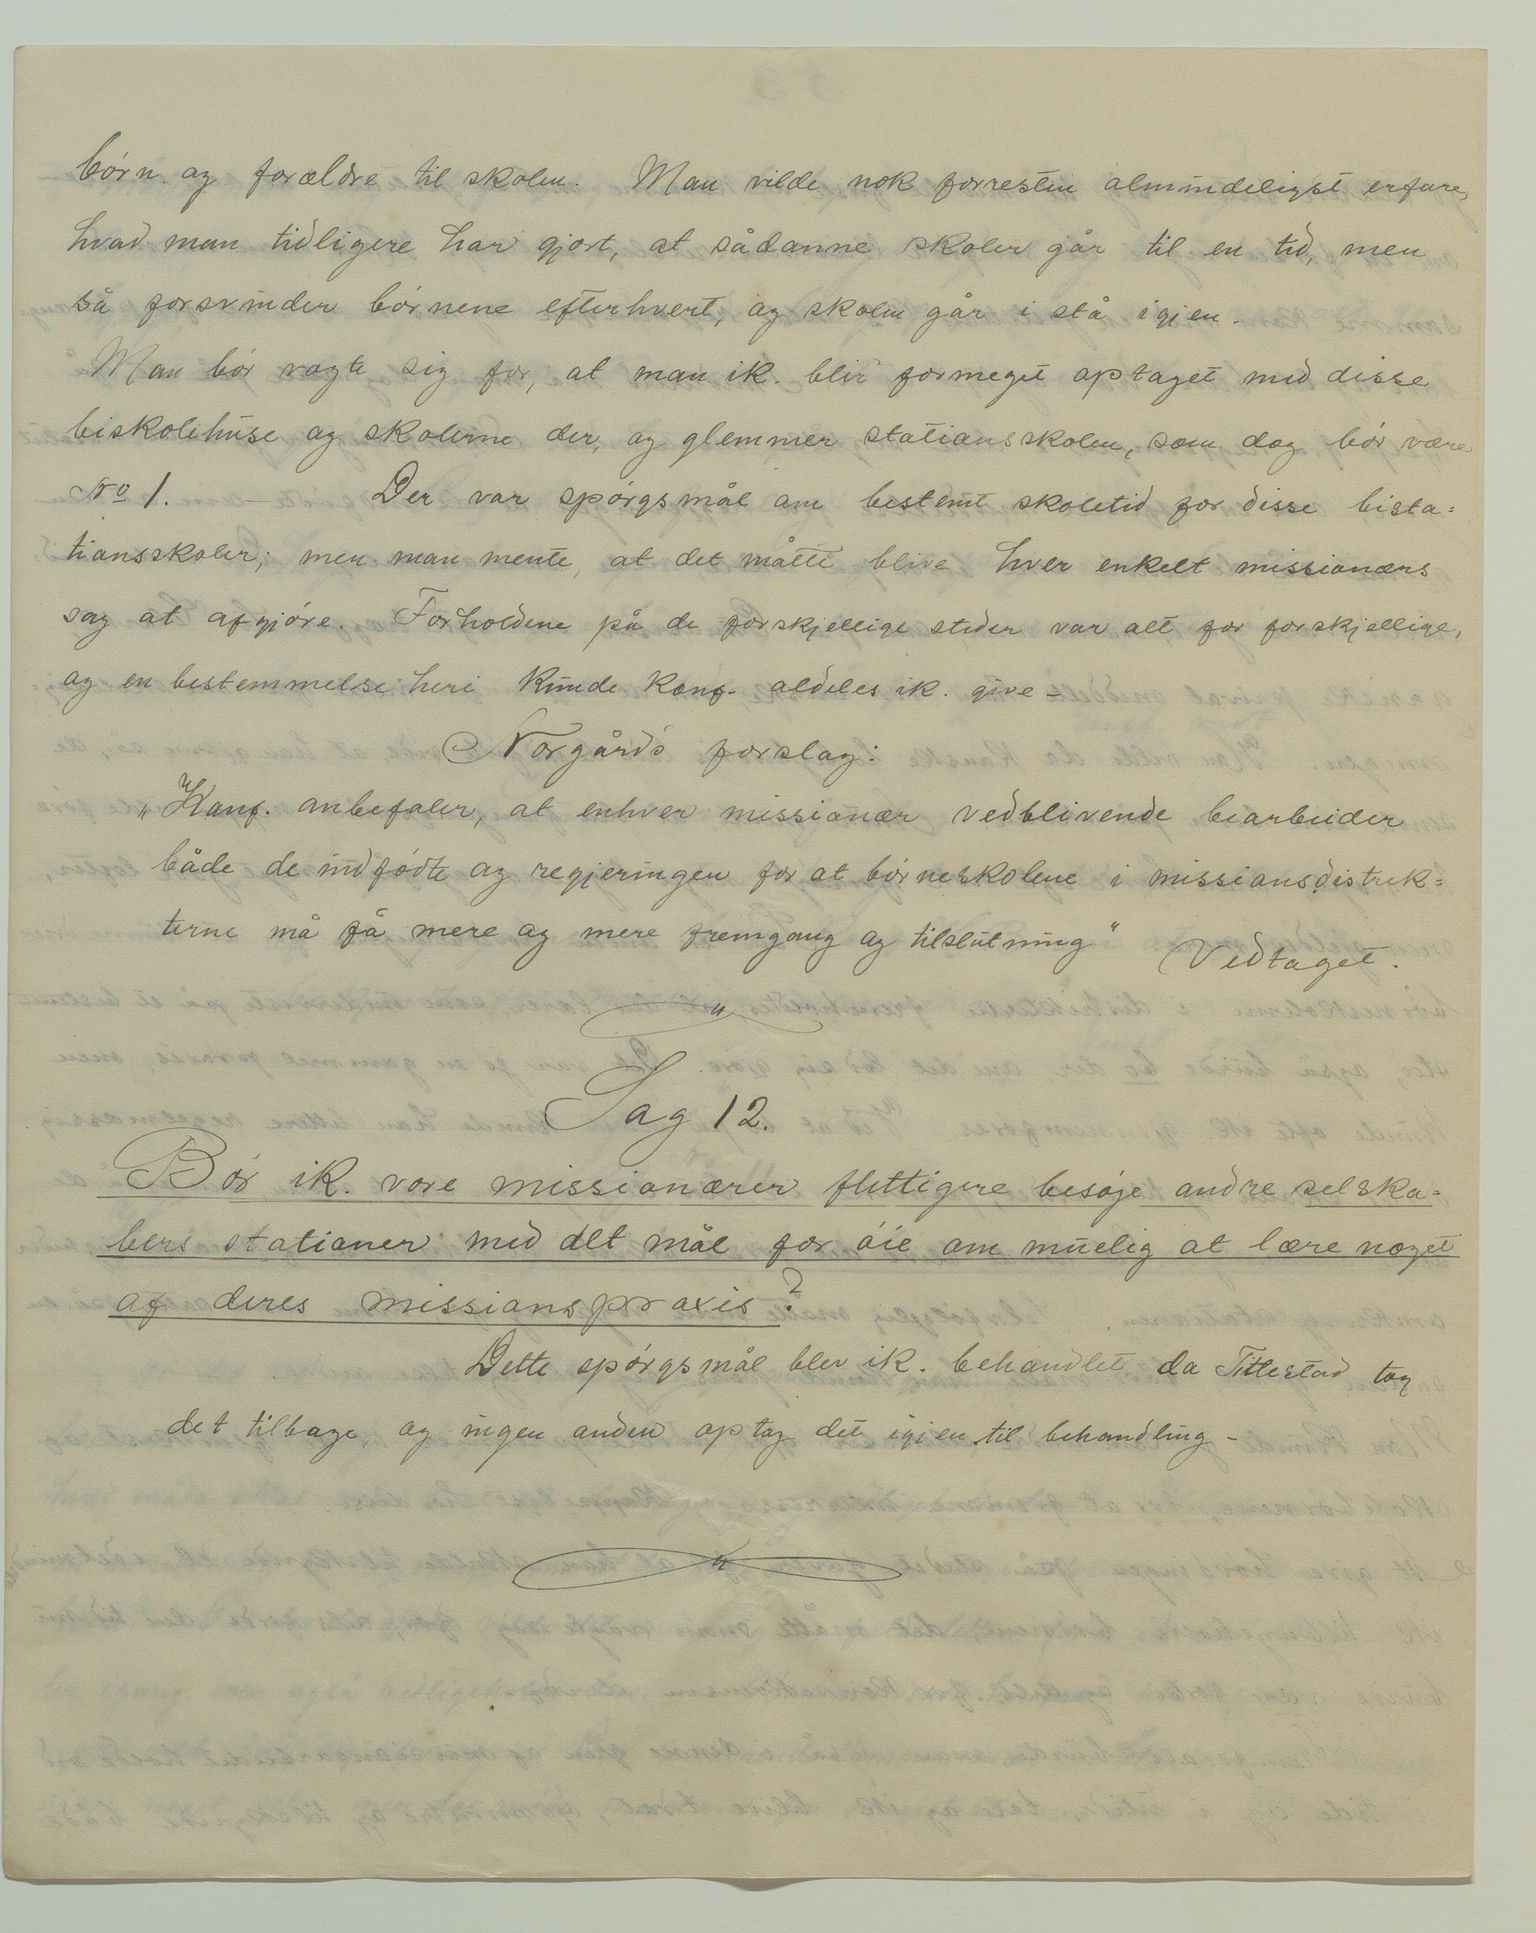 børn og forældre til skolen. Man vilde nok forresten almindeligst erfare,
hvad man tidligere har gjort, at sådanne skoler går til en tid, men
så forsvinder børnene efterhvert, og skolen går i stå igjen.
Man bør vogte sig for, at man ik. blir formeget optaget med disse
biskolehuse og skolerne der, og glemmer stationsskolen, som dog bør være
No 1. Der var spørgsmål om bestemt skoletid for disse bista=
tionsskoler; men man mente, at det måtte blive hver enkelt missionærs
sag at afgjøre. Forholdene på de forskjellige steder var alt for forskjellige,
og en bestemmelse heri kunde Konf. aldeles ik. give –
Norgårds forslag:
„Konf. anbefaler, at enhver missionær vedblivende bearbeider
både de indfødte og regjeringen for at børneskolene i missionsdistrik=
terne må få mere og mere fremgang og tilslutning“ Vedtaget.
Sag 12.
Bør ik. vore missionærer flittigere besøge andre selska=
bers stationer med det mål for øie om muelig at lære noget
af deres missionspraxis?
Dette spørgsmål blev ik. behandlet da Titlestad tog
det tilbage, og ingen anden optog det igjen til behandling –